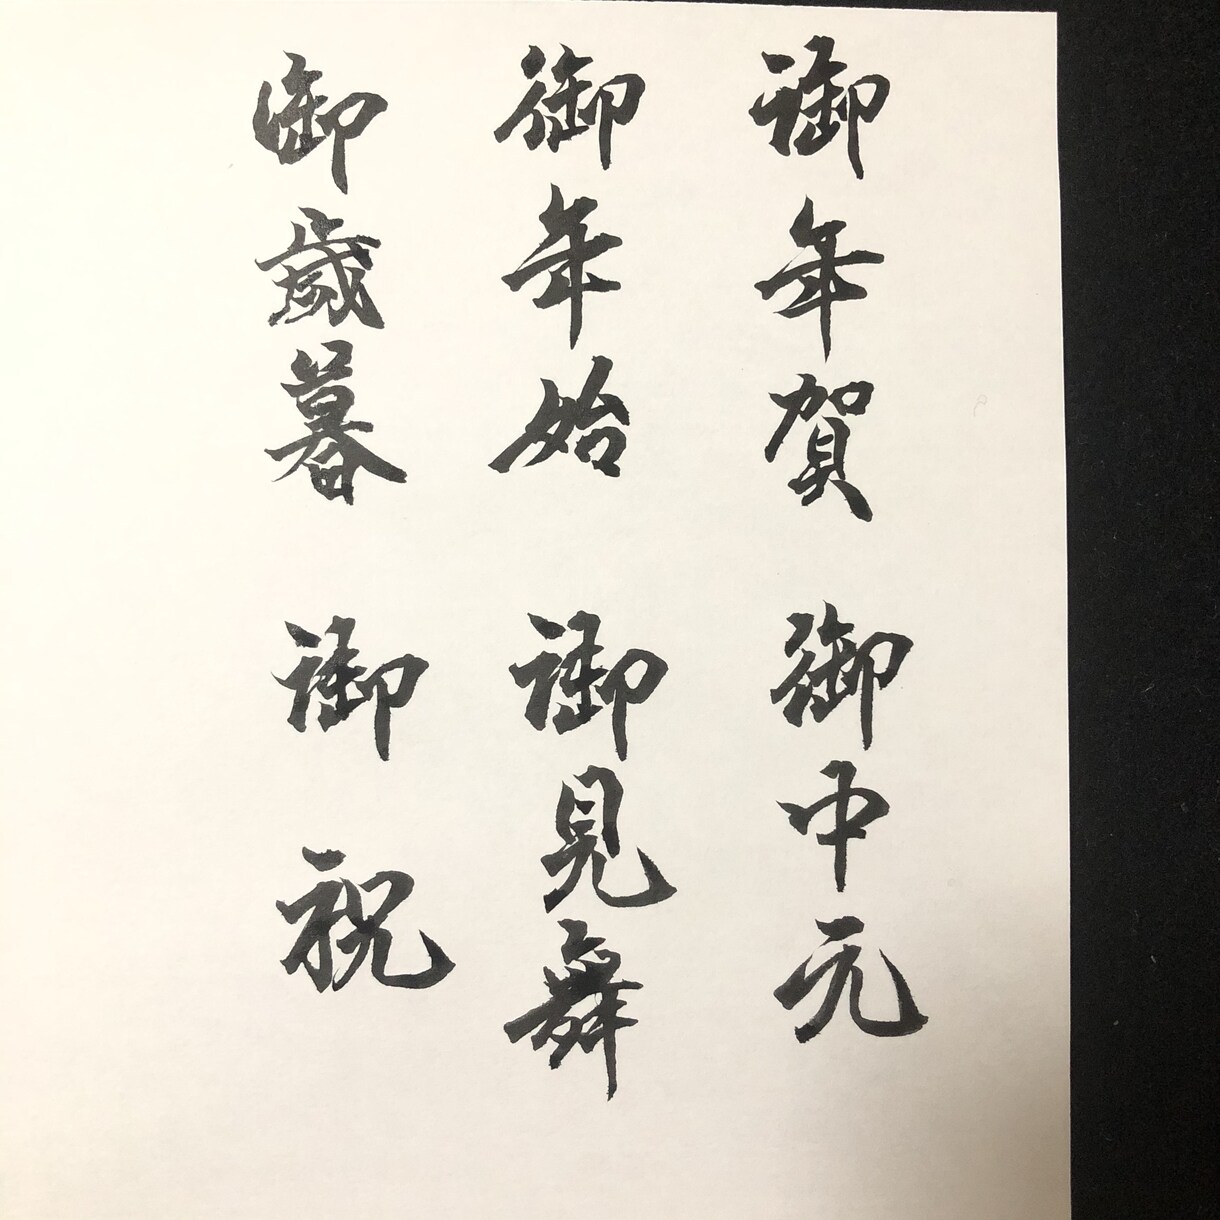 御年賀
御中元
御年始
御見舞
御歳暮
御祝